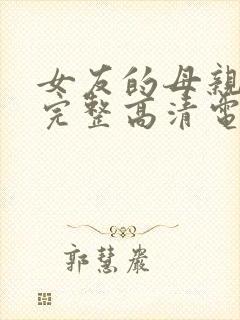 女友的母親
完整高清電
郭慧嚴